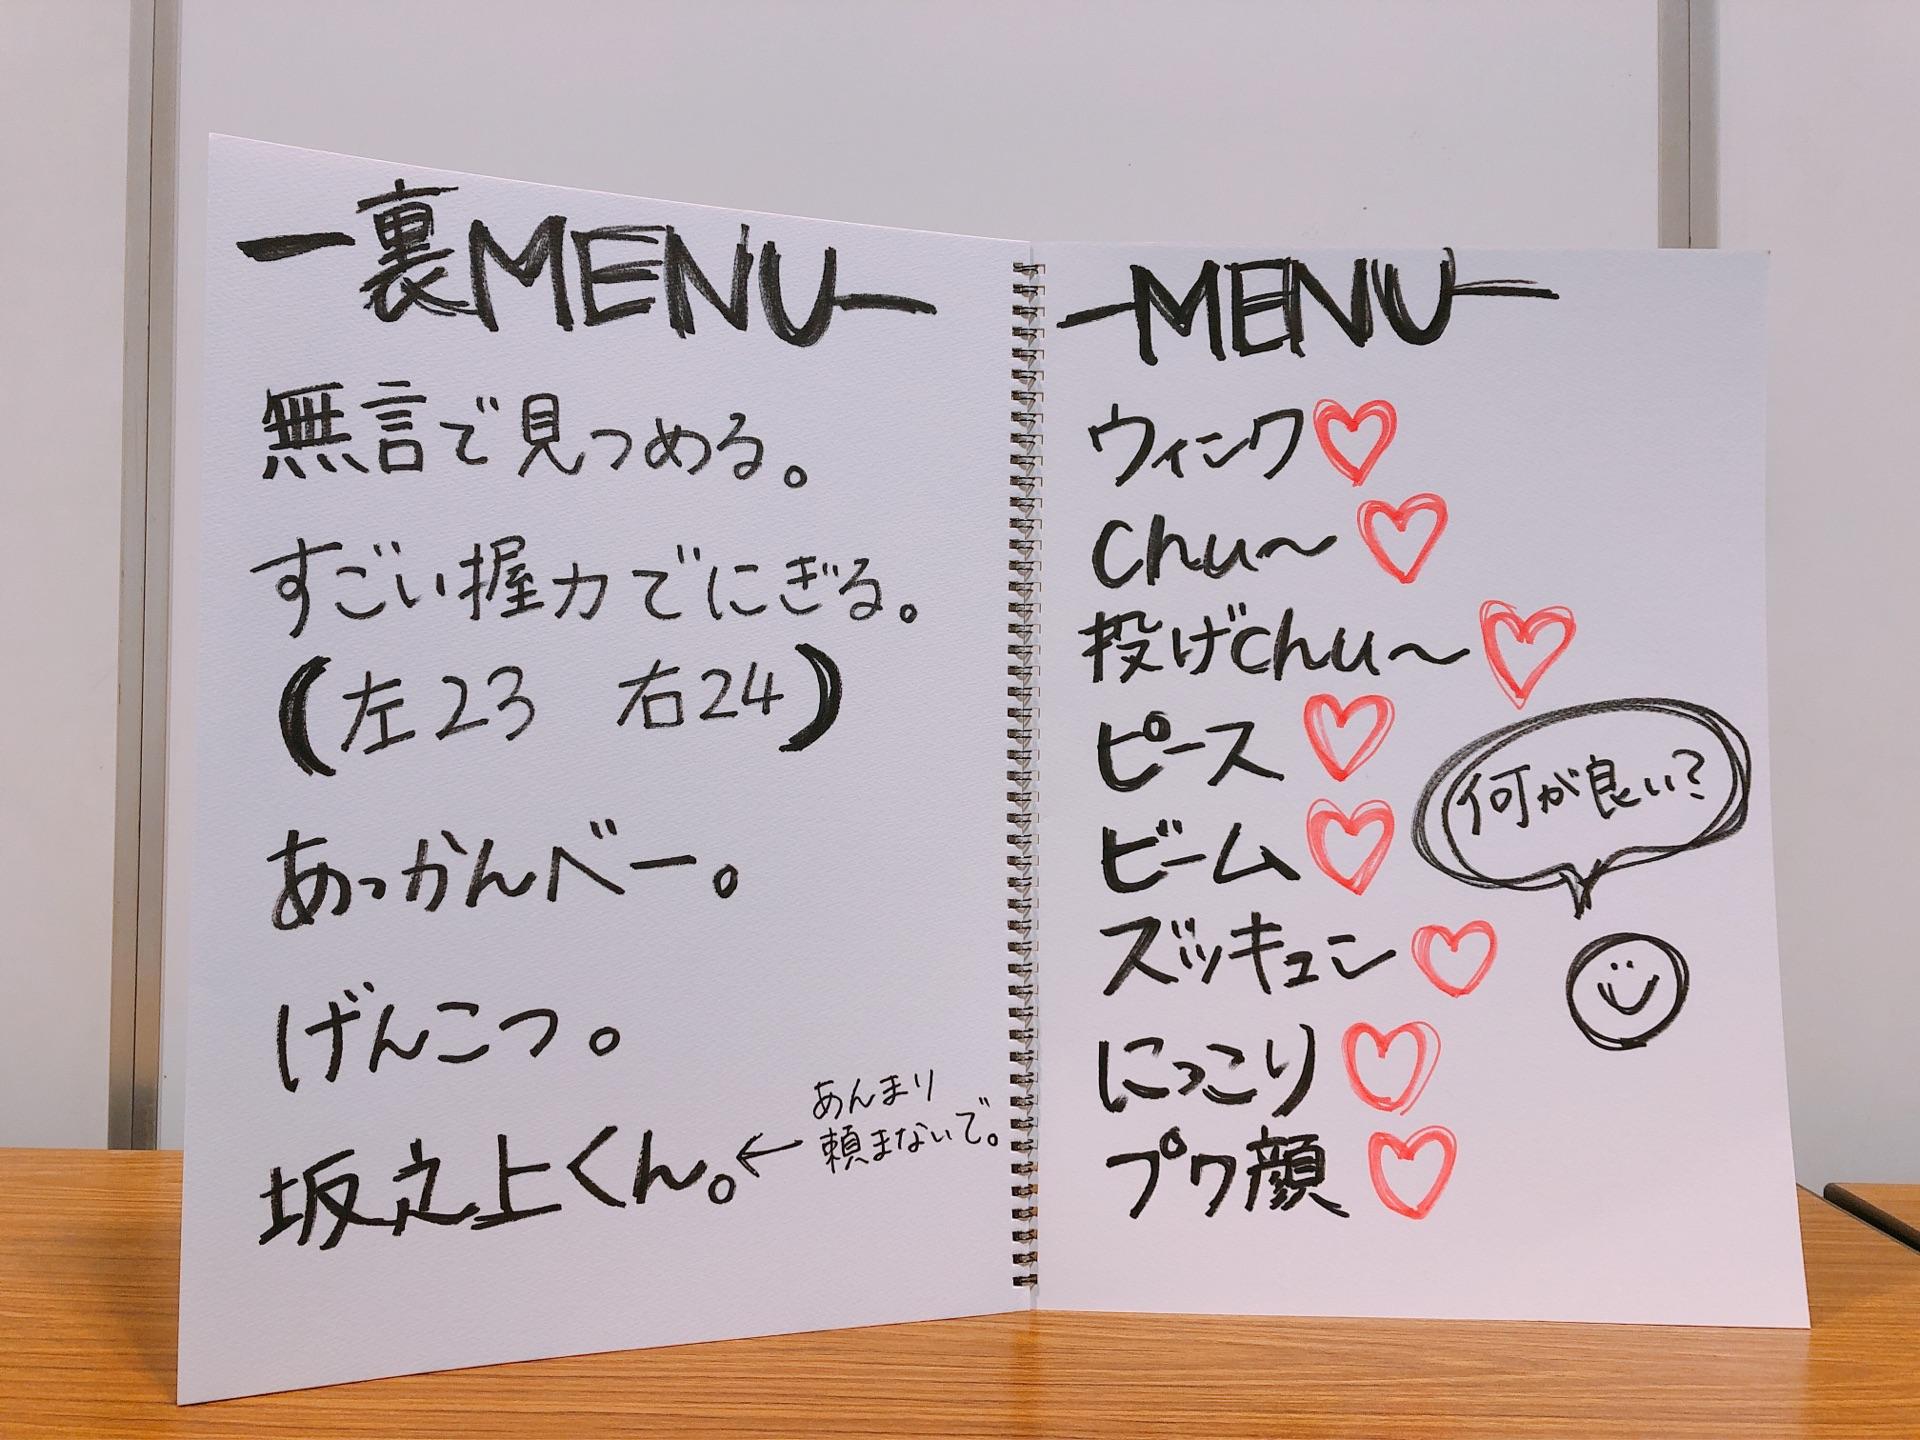 -裏MENU-
無言で見つめる。
すごい握力でにぎる。
(左23 右24)
あっかんべー。
げんこつ。
坂之上くん。←あんまり
頼まないで。
-MENU-
ウィンク♡
chu〜♡
投げchu〜♡
ピース♡
ビーム♡
ズッキュン♡
にっこり♡
プク顔♡
何が良い?